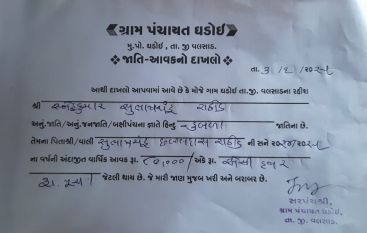 ગ્રામ પંચાયત ઘડોઈ
મુ.પો. ઘડોઈ, તા. જી વલસાડ.
❖ જાતિ-આવકનો દાખલો ❖
તા. 3/2/૨૦૨૫
આથી દાખલો આપવામાં આવે છે કે મોજે ગામ ઘડોઈ તા.જી. વલસાડના રહીશ
શ્રી સ્નેહકુમાર રાઠોડ
અનુ.જાતિ/અનુ.જનજાતિ/બક્ષીપંચના જ્ઞાતે હિન્દુ જાતિના છે.
તેમના પિતાશ્રી/વાલી રાઠોડ ની સને ૨૦૨૪/૨૦૨૫
ના વર્ષની અંદાજીત વાર્ષિક આવક રૂા. ૮૦,૦૦૦/ અંકે રૂા. એંસી હજાર
રૂા. પુરા જેટલી થાય. જે મારી જાણ મુજબ ખરી અને બરાબર છે.
સરપંચશ્રી,
ગ્રામ પંચાયત ઘડોઈ,
તા.જી. વલસાડ.